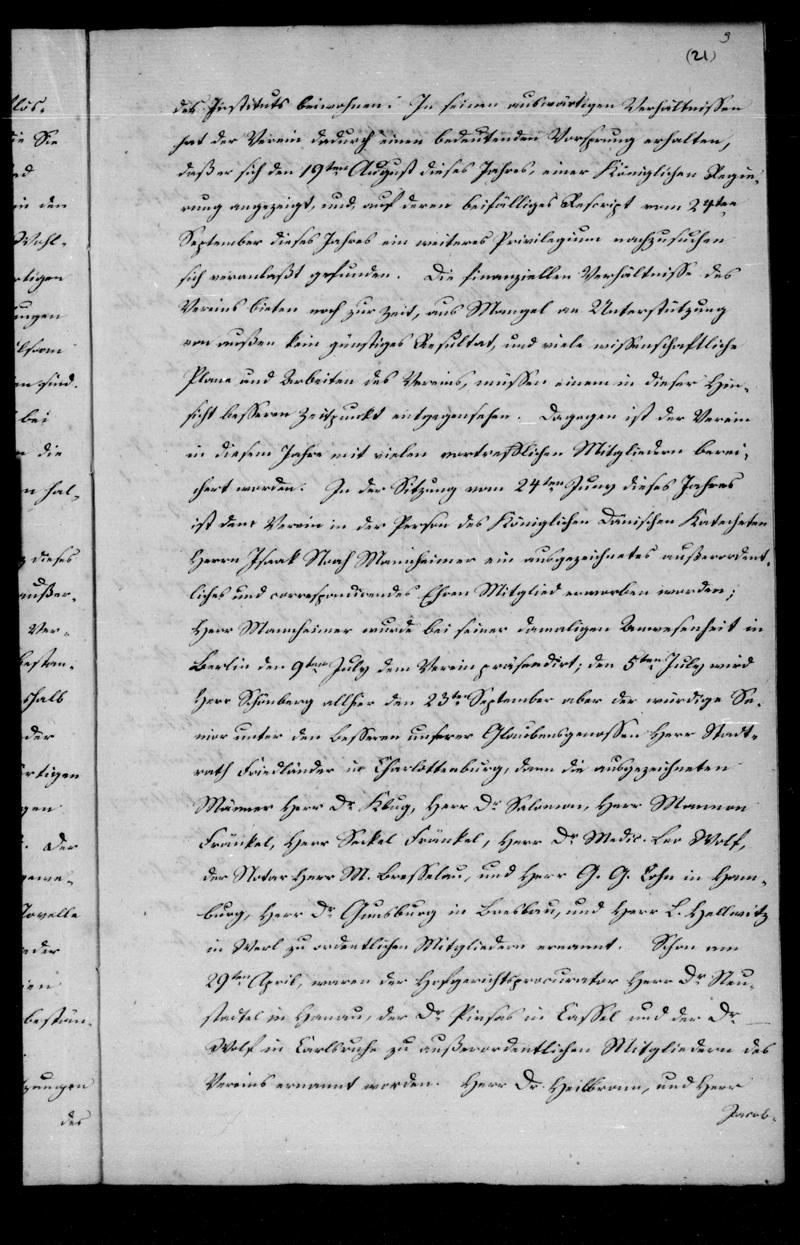 9
(21)
des Instituts beiwohnen. In seinen auswärtigen Verhältnissen
hat der Verein dadurch einen bedeutenden Vorsprung erhalten,
daß er sich den 19ten August dieses Jahres, einer Königlichen Regie-
rung angezeigt, und auf deren beifälliges Rescript vom 24ten
September dieses Jahres ein weiteres Privilegium nachzusuchen
sich veranlaßt gefunden. Die finanziellen Verhältnisse des
Vereins bieten noch zur Zeit, aus Mangel an Unterstützung
von außen kein günstiges Resultat, und viele wissenschaftliche
Plane und Arbeiten des Vereins, müssen einem in dieser Hin-
sicht besseren Zeitpunkt entgegensehen. Dagegen ist der Verein
in diesem Jahre mit vielen vortrefflichen Mitgliedern berei-
chert worden. In der Sitzung vom 24ten Juny dieses Jahres
ist dem Verein in der Person des Königlichen Dänischen Katecheten
Herrn Isaak Noah Mannheimer ein ausgezeichnetes außerordent-
liches und correspondirendes Ehren Mitglied erworben worden;
Herr Mannheimer wurde bei seiner damaligen Anwesenheit in
Berlin den 9ten July dem Verein präsentirt; den 5ten July wird
Herr Schönberg allhier den 23ten September aber der würdige Se-
nior unter den Besseren unserer Glaubensgenossen Herr Stadt-
rath Friedländer in Charlottenburg, dann die ausgezeichneten
Männer Herr Dr Kley, Herr Dr Salomon, Herr Mannon
Fränkel, Herr Seckel Fränkel, Herr Dr Medic. Leo Wolf,
der Notar Herr M. Bresselau, und Herr G. G. Cohn in Ham-
burg, Herr Dr Gunsburg in Breslau, und Herr L. Hellwitz
in Werl zu ordentlichen Mitgliedern ernannt. Schon am
29ten April, waren der Hofgerichtsprocurator Herr Dr Neu-
stadtel in Hanau, der Dr Pinhas in Cassel und der Dr
Wolf in Carlsruhe zu außerordentlichen Mitgliedern des
Vereins ernannt worden. Herr Dr. Heilbronn, und Herr
Jacob-